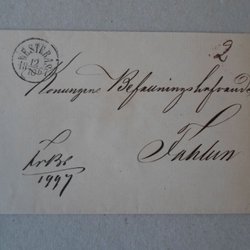 WESTERÅS
12
2
Konungens Befallningshafvande
Fahlun
FrBr
1997